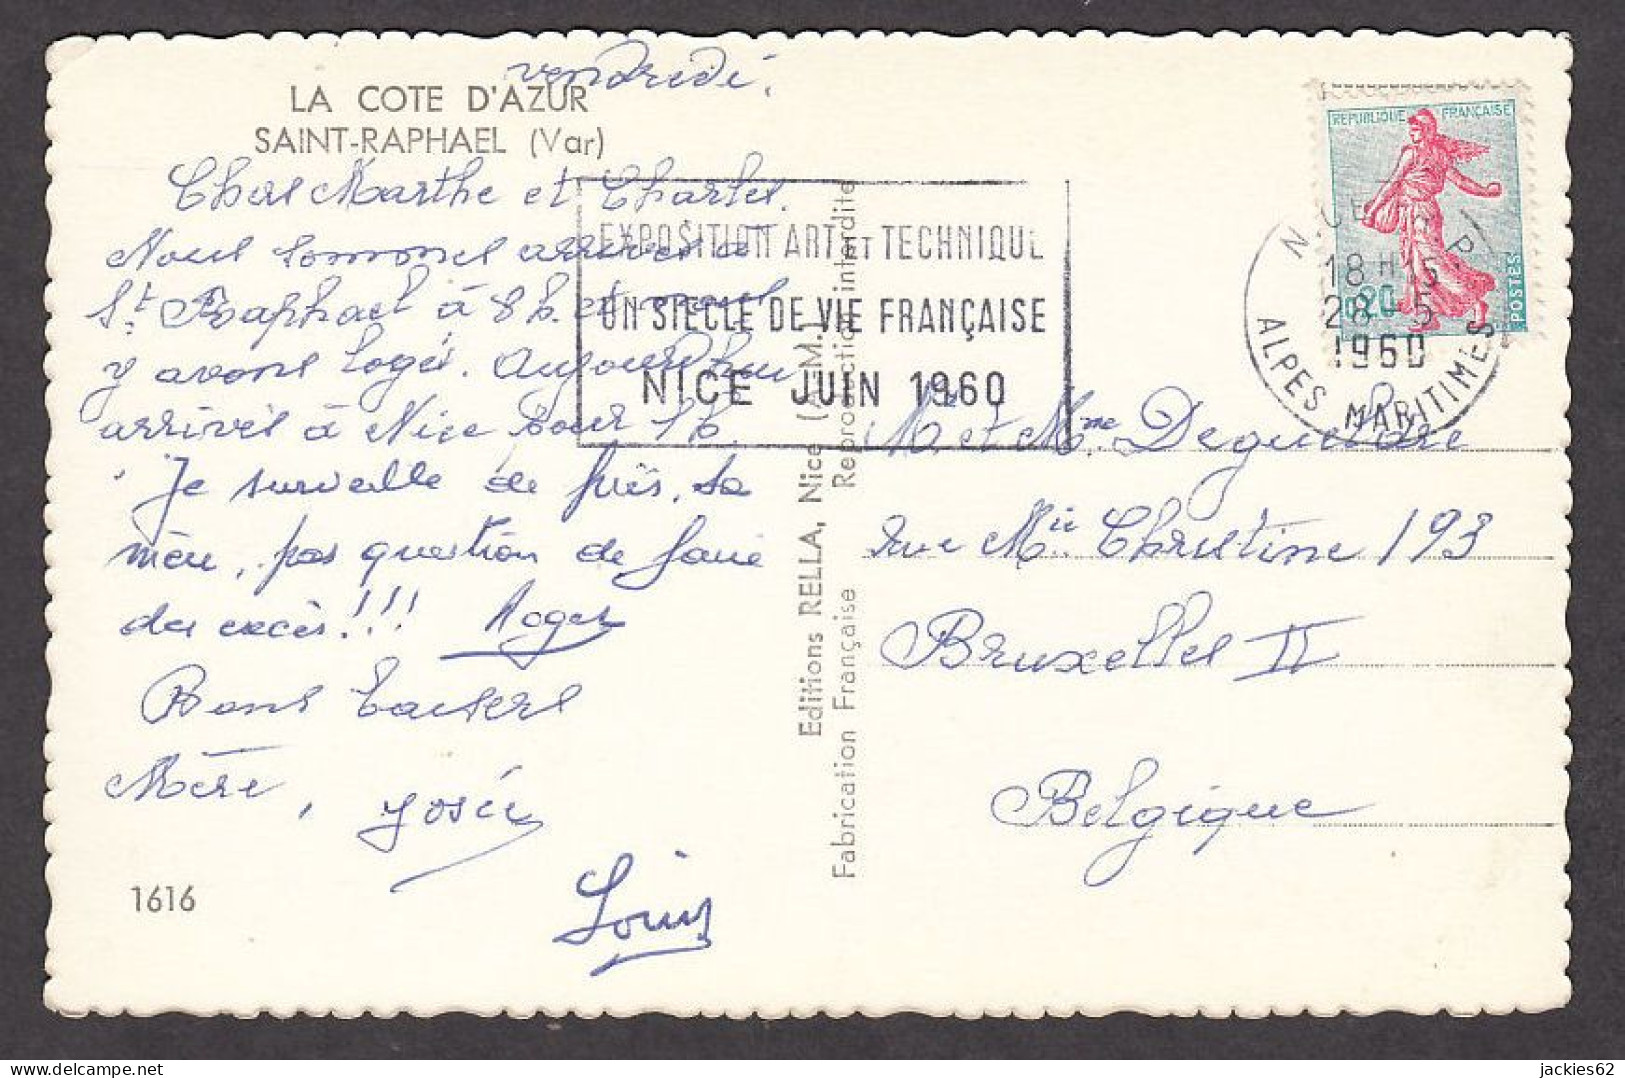 vendredi.
LA COTE D'AZUR
SAINT-RAPHAEL (Var)
Chers Marthe et Charles.
Nous sommes arrivés à
St. Raphael à 8 h. et nous
y avons logés. Aujourdhui
arrivés à Nice pour 1 h.
Je surveille de près, ta
mère, pas question de faire
des excès!!! Roger
Bons baisers
Mère, Josée
Louis
1616
EXPOSITION ART ET TECHNIQUE
UN SIECLE DE VIE FRANÇAISE
NICE JUIN 1960
Editions RELLA, Nice (A.-M.)
Fabrication Française
Reproduction interdite
REPUBLIQUE FRANÇAISE
0,20
POSTES
NICE R.P.
18 H 15
28-5
1960
ALPES MARITIMES
Mr et Mme
rue Mie Christine 193
Bruxelles II
Belgique
jackies62